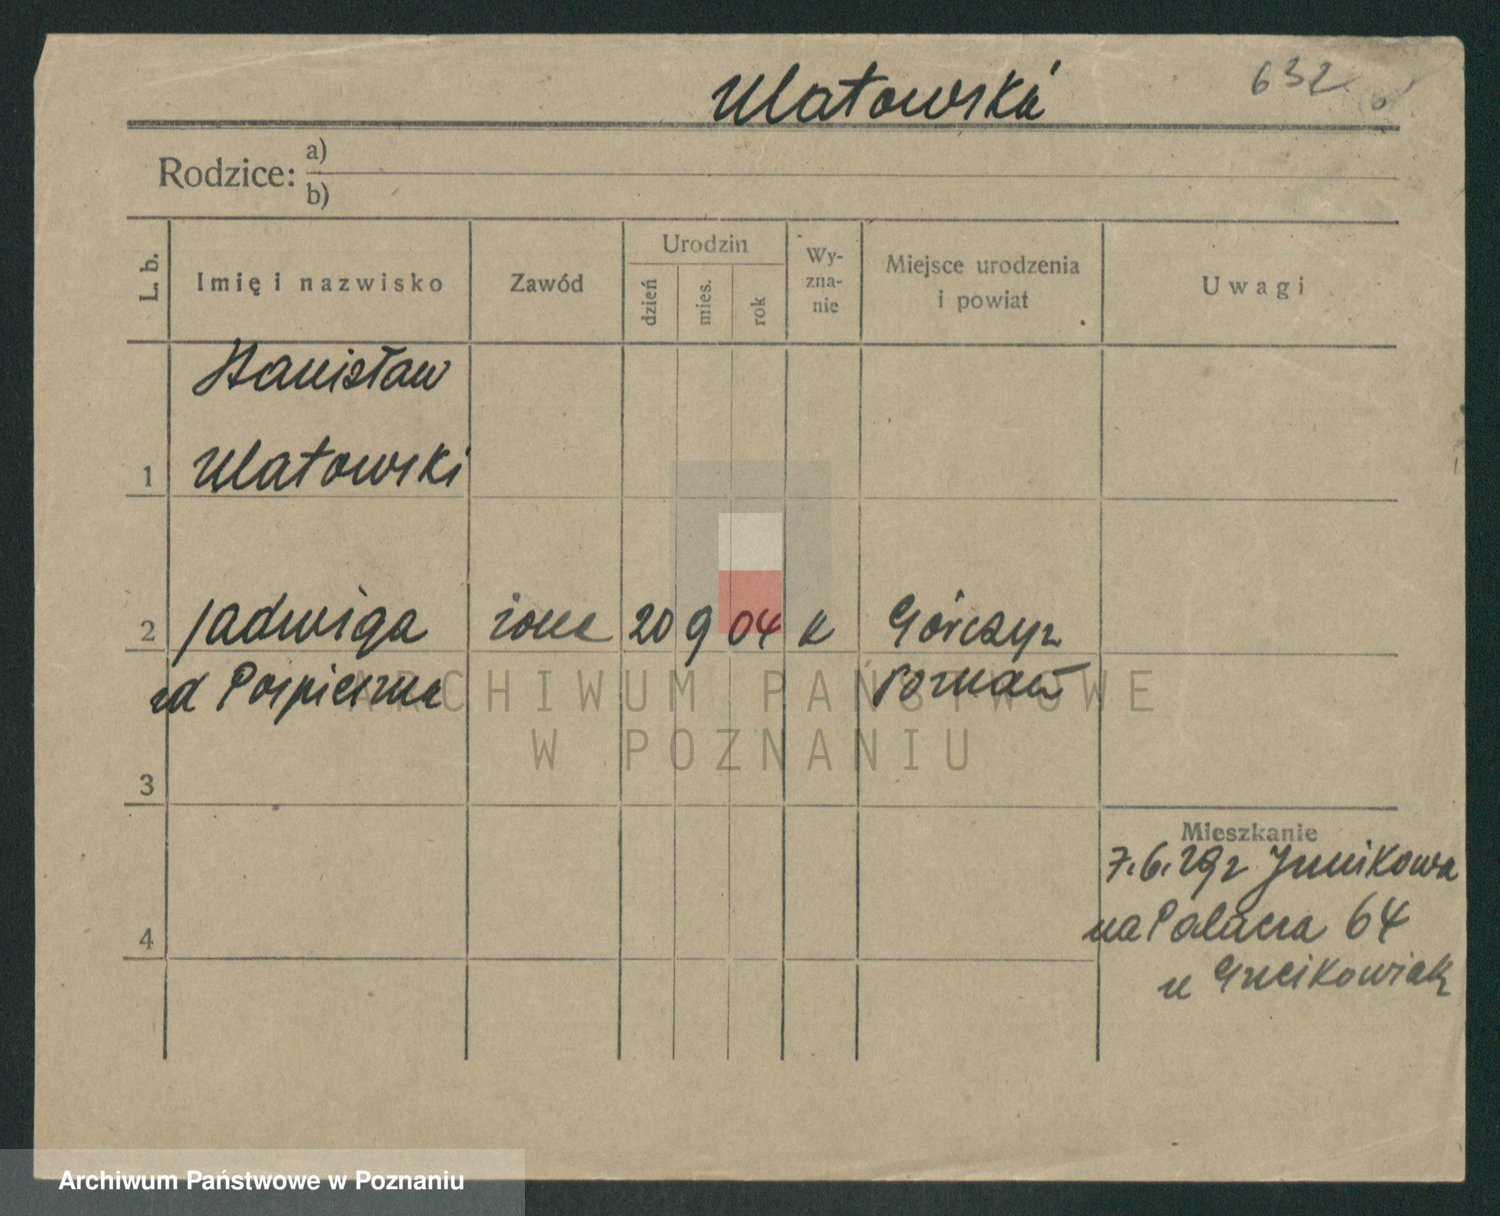 Ulatowska
632
Rodzice: a)
b)
L. b.
Imię i nazwisko
Zawód
Urodzin
dzień
mies.
rok
Wy-
zna-
nie
Miejsce urodzenia
i powiat
Uwagi
Stanisław
1 Ulatowski
2 Jadwiga żona 20 9 04 K Górczyn
Poznań
3
Mieszkanie
7.6.29r Junikowa
na Palacza 64
4
ARCHIWUM PAŃSTWOWE
W POZNANIU
Archiwum Państwowe w Poznaniu